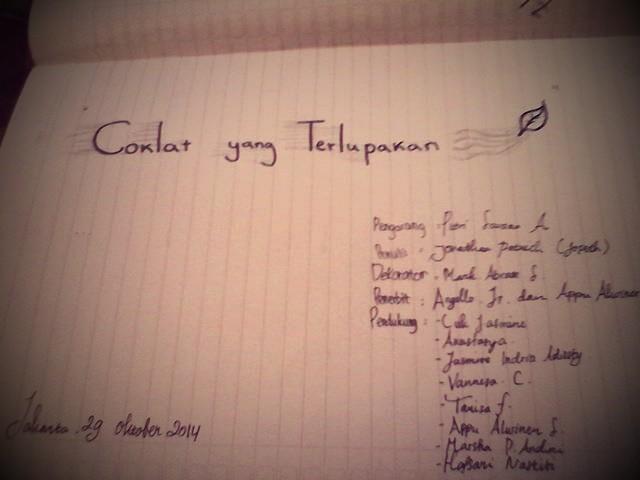 Coklat yang Terlupakan
Pengarang : Putri A
Penulis : Jonathan (Joseph)
Dekorator : Mark Abram S.
Penerbit : Angello Jr. dan Appu Alwinen
Pendukung : - Jasmine
- Anastasya
- Jasmine Indria
- Vannesa C.
- Tanisa F.
- Appu Alwinen S.
- Marsha P. Andini
- Hafsari Nastiti
Jakarta, 29 Oktober 2014